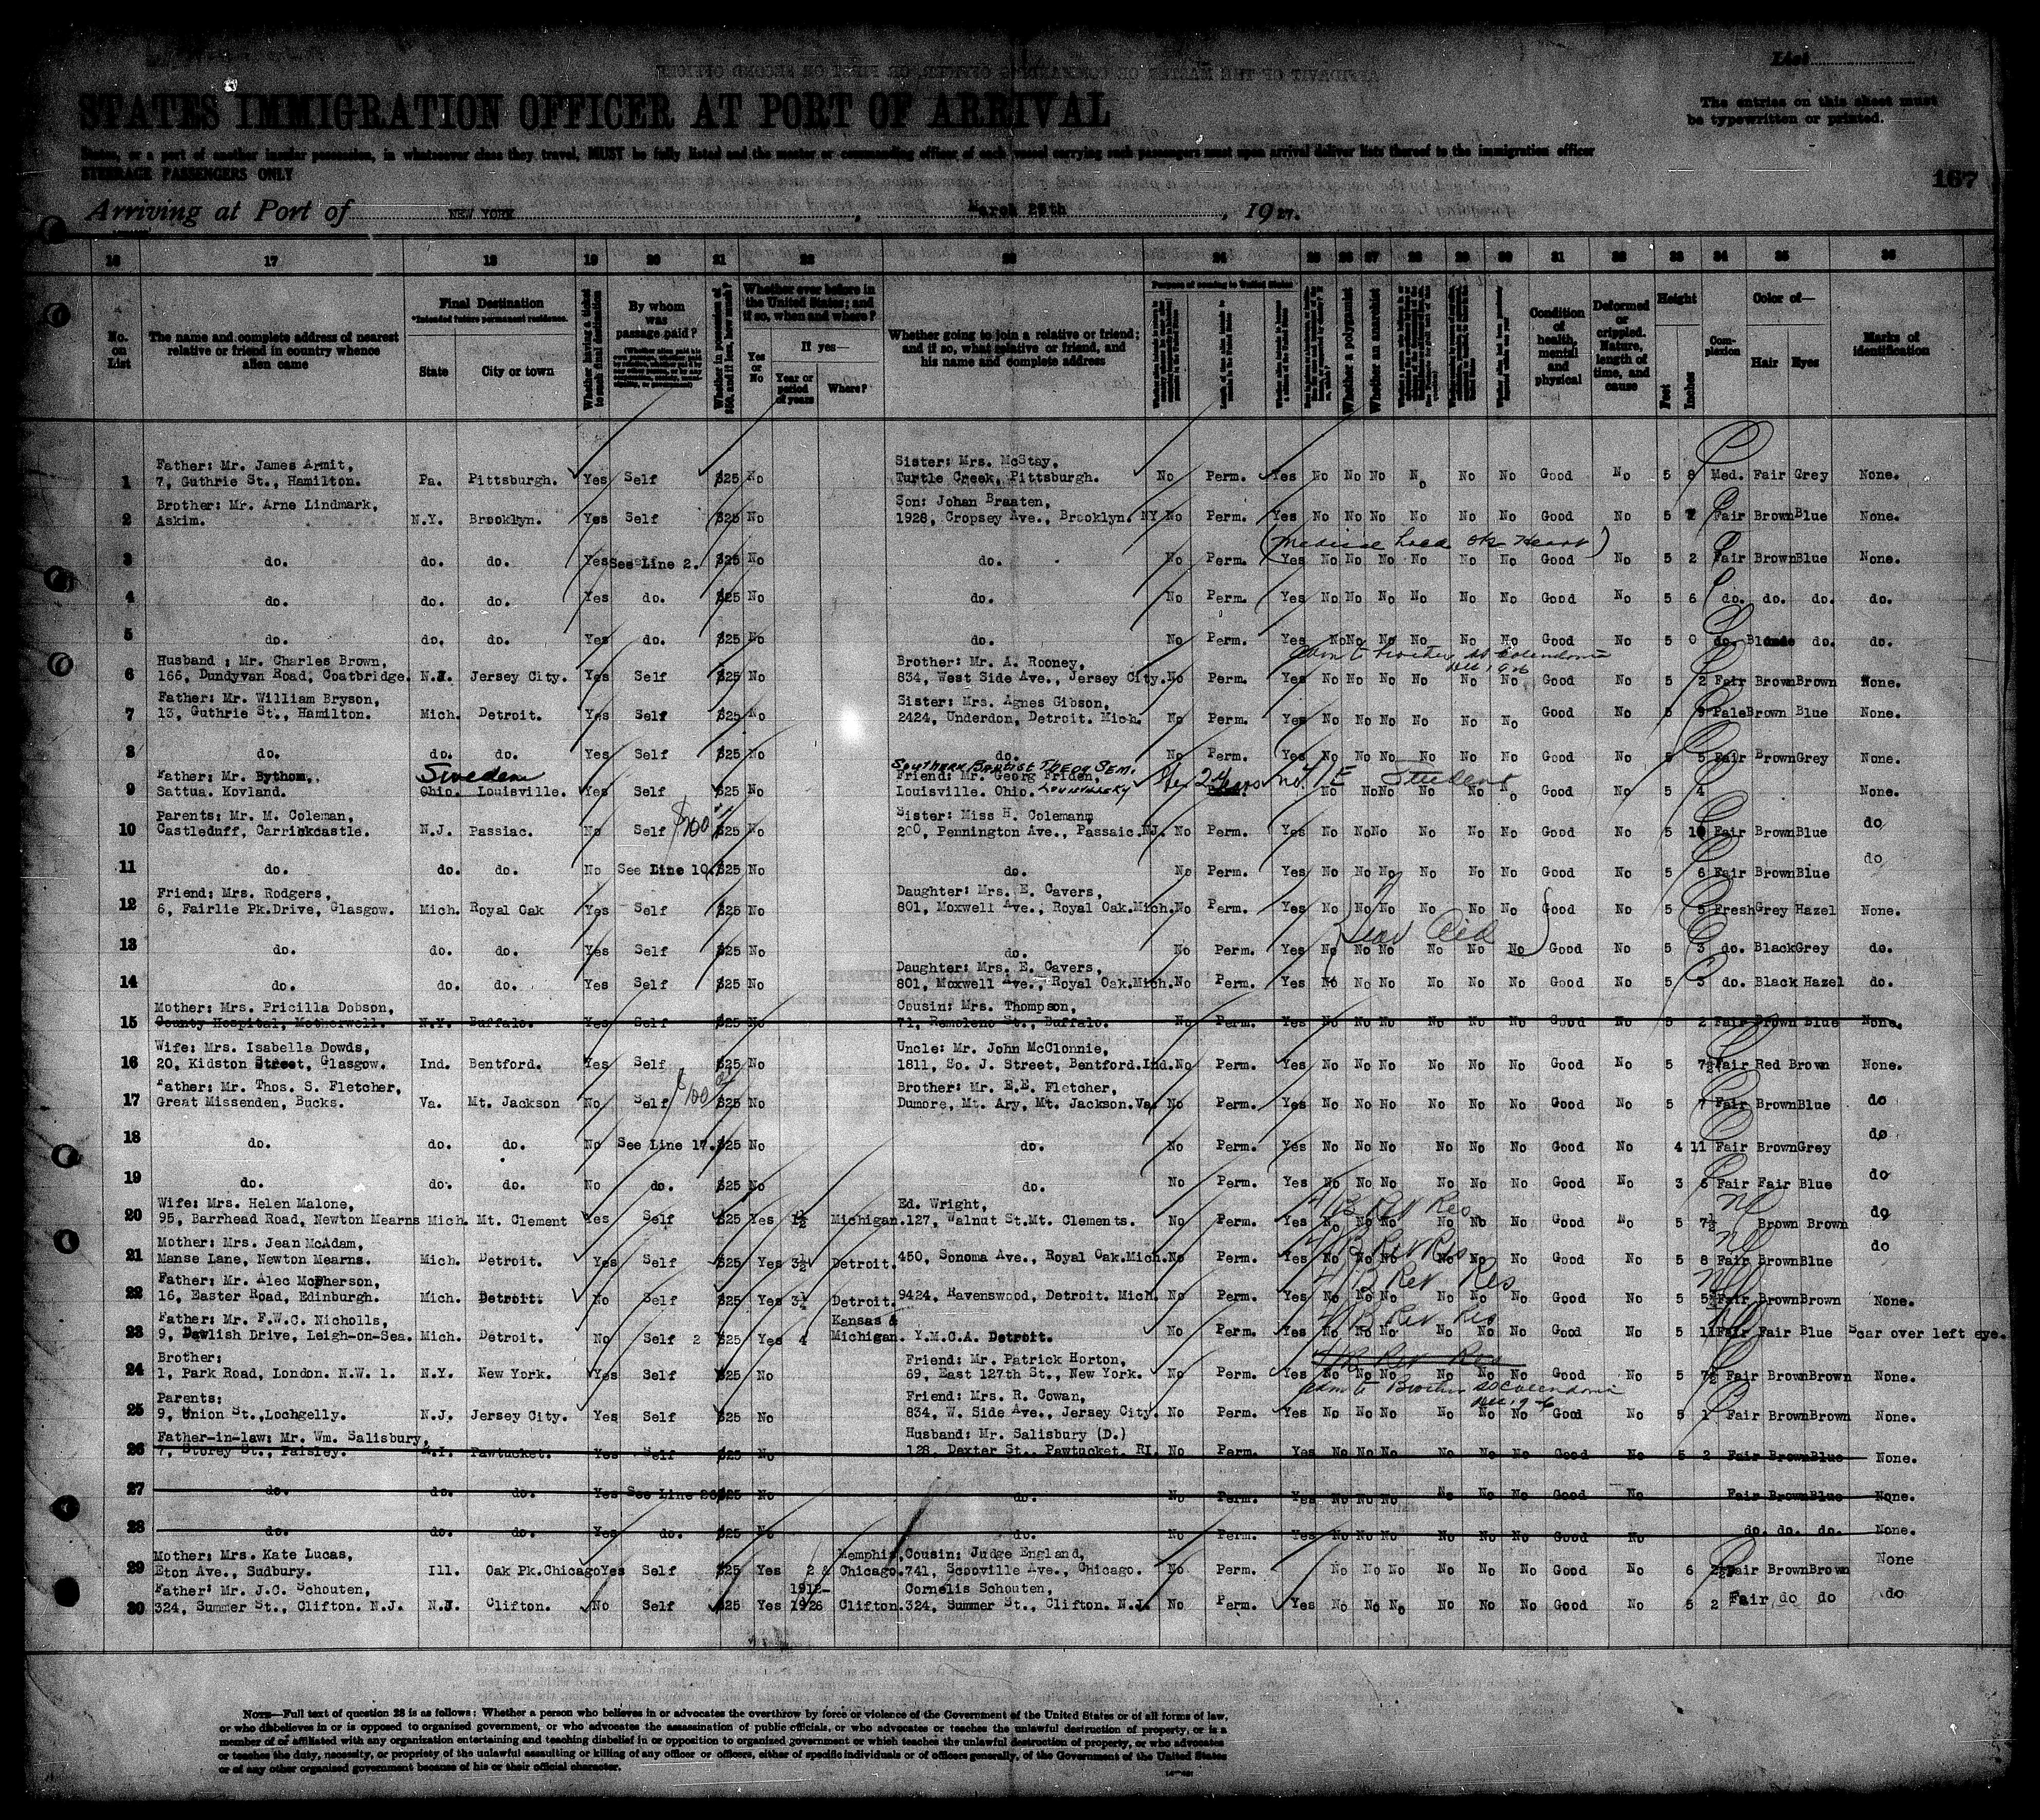 List
STATES IMMIGRATION OFFICER AT PORT OF ARRIVAL
The entries on this sheet must
be typewritten or printed.
States, or a port of another insular possession, in whatsoever class they travel, MUST be fully listed and the master or commanding officer of each vessel carrying such passengers must upon arrival deliver lists thereof to the immigration officer
STEERAGE PASSENGERS ONLY
167
Arriving at Port of NEW YORK, March 28th, 1927.
16 17 18 19 20 21 22 23 24 25 26 27 28 29 30 31 32 33 34 35 36
No. on List
The name and complete address of nearest relative or friend in country whence alien came
Final Destination
*Intended future permanent residence.
State City or town
Whether having a ticket to such final destination
By whom was passage paid?
Whether in possession of $50, and if less, how much?
Whether ever before in the United States; and if so, when and where?
Yes or No
If yes—
Year or period of years
Where?
Whether going to join a relative or friend; and if so, what relative or friend, and his name and complete address
Purpose of coming to United States
Whether a polygamist
Whether an anarchist
Condition of health, mental and physical
Deformed or crippled. Nature, length of time, and cause
Height
Feet Inches
Complexion
Color of—
Hair Eyes
Marks of identification
Father: Mr. James Armit, Sister: Mrs. McStay,
1 7, Guthrie St., Hamilton. Pa. Pittsburgh. Yes Self $25 No Turtle Creek, Pittsburgh. No Perm. Yes No No No No No No Good No 5 8 Med. Fair Grey None.
Brother: Mr. Arne Lindmark, Son: Johan Braaten,
2 Askim. N.Y. Brooklyn. Yes Self $25 No 1928, Cropsey Ave., Brooklyn. NY No Perm. Yes No No No No No No Good No 5 Fair Brown Blue None.
3 do. do. do. Yes See Line 2. $25 No do. No Perm. Yes No No No No No No Good No 5 2 Fair Brown Blue None.
4 do. do. do. Yes do. $25 No do. No Perm. Yes No No No No No No Good No 5 6 do. do. do. do.
5 do. do. do. Yes do. $25 No do. No Perm. Yes No No No No No No Good No 5 0 do. Blonde do. do.
Husband : Mr. Charles Brown, Brother: Mr. A. Rooney,
6 166, Dundyvan Road, Coatbridge. N.J. Jersey City. Yes Self $25 No 834, West Side Ave., Jersey City. No Perm. Yes No No No No No No Good No 5 2 Fair Brown Brown None.
Father: Mr. William Bryson, Sister: Mrs. Agnes Gibson,
7 13, Guthrie St., Hamilton. Mich. Detroit. Yes Self $25 No 2424, Underdon, Detroit. Mich. No Perm. Yes No No No No No No Good No 5 9 Pale Brown Blue None.
8 do. do. do. Yes Self $25 No do. No Perm. Yes No No No No No No Good No 5 5 Fair Brown Grey None.
Sweden Southern Baptist Theo. Sem.
Father: Mr. Bythom, Friend: Mr. Georg Friden,
9 Sattua. Kovland. Ohio. Louisville. Yes Self $25 No Louisville. Ohio. Louisville Ky 2 years no Student No No No No No No Good No 5 4 None.
Parents: Mr. M. Coleman, Sister: Miss H. Colemann
10 Castleduff, Carrickcastle. N.J. Passiac. No Self $100 $25 No 200, Pennington Ave., Passaic. NJ. No Perm. Yes No No No No No No Good No 5 10 Fair Brown Blue do
11 do. do. do. No See Line 10. $25 No do. No Perm. Yes No No No No No No Good No 5 6 Fair Brown Blue do
Friend: Mrs. Rodgers, Daughter: Mrs. E. Cavers,
12 6, Fairlie Pk.Drive, Glasgow. Mich. Royal Oak Yes Self $25 No 801, Moxwell Ave., Royal Oak.Mich. No Perm. Yes No No No No No No Good No 5 5 Fresh Grey Hazel None.
13 do. do. do. Yes Self $25 No do. No Perm. Yes No No No No No No Good No 5 3 do. Black Grey do.
Daughter: Mrs. E. Cavers,
14 do. do. do. Yes Self $25 No 801, Moxwell Ave., Royal Oak.Mich. No Perm. Yes No No No No No No Good No 5 5 do. Black Hazel do.
Mother: Mrs. Pricilla Dobson, Cousin: Mrs. Thompson,
15 County Hospital, Motherwell. N.Y. Buffalo. Yes Self $25 No 71, Ramoleno St., Buffalo. No Perm. Yes No No No No No No Good No 5 2 Fair Brown Blue None.
Wife: Mrs. Isabella Dowds, Uncle: Mr. John McClonnie,
16 20, Kidston Street, Glasgow. Ind. Bentford. Yes Self $25 No 1811, So. J. Street, Bentford.Ind. No Perm. Yes No No No No No No Good No 5 7½ Fair Red Brown None.
Father: Mr. Thos. S. Fletcher, Brother: Mr. E.E. Fletcher,
17 Great Missenden, Bucks. Va. Mt. Jackson No Self $100 $25 No Dumore, Mt. Ary, Mt. Jackson.Va. No Perm. Yes No No No No No No Good No 5 7 Fair Brown Blue do
18 do. do. do. No See Line 17. $25 No do. No Perm. Yes No No No No No No Good No 4 11 Fair Brown Grey do
19 do. do. do. No do. $25 No do. No Perm. Yes No No No No No No Good No 3 6 Fair Fair Blue do
Wife: Mrs. Helen Malone, Ed. Wright, 4/B Rev Res
20 95, Barrhead Road, Newton Mearns Mich. Mt. Clement Yes Self $25 Yes 1½ Michigan. 127, Walnut St.Mt. Clements. No Perm. Yes No No No No No No Good No 5 7½ Brown Brown do
Mother: Mrs. Jean McAdam, 4/B Rev Res
21 Manse Lane, Newton Mearns. Mich. Detroit. Yes Self $25 Yes 3½ Detroit. 450, Sonoma Ave., Royal Oak.Mich. No Perm. Yes No No No No No No Good No 5 8 Fair Brown Blue do
Father: Mr. Alec McPherson, 4/B Rev Res
22 16, Easter Road, Edinburgh. Mich. Detroit. No Self $25 Yes 3½ Detroit. 9424, Ravenswood, Detroit. Mich. No Perm. Yes No No No No No No Good No 5 5½ Fair Brown Brown None.
Father: Mr. F.W.C. Nicholls, Kansas & 4/B Rev Res
23 9, Dawlish Drive, Leigh-on-Sea. Mich. Detroit. No Self 2 $25 Yes 4 Michigan. Y.M.C.A. Detroit. No Perm. Yes No No No No No No Good No 5 11 Fair Fair Blue Scar over left eye.
Brother: Friend: Mr. Patrick Horton, 4/B Rev Res
24 1, Park Road, London. N.W. 1. N.Y. New York. Yes Self $25 No 69, East 127th St., New York. No Perm. Yes No No No No No No Good No 5 7½ Fair Brown Brown None.
Parents: Friend: Mrs. R. Cowan,
25 9, Union St.,Lochgelly. N.J. Jersey City. Yes Self $25 No 834, W. Side Ave., Jersey City. No Perm. Yes No No No No No No Good No 5 1 Fair Brown Brown None.
Father-in-law: Mr. Wm. Salisbury, Husband: Mr. Salisbury (D.)
26 7, Storey St., Paisley. R.I. Pawtucket. Yes Self $25 No 128, Dexter St., Pawtucket. RI. No Perm. Yes No No No No No No Good No 5 2 Fair Brown Blue None.
27 do. do. do. Yes See Line 26 $25 No do. No Perm. Yes No No No No No No Good No Fair Brown Blue None.
28 do. do. do. Yes do. $25 No do. No Perm. Yes No No No No No No Good No do. do. do. None.
Mother: Mrs. Kate Lucas, Memphis, Cousin: Judge England,
29 Eton Ave., Sudbury. Ill. Oak Pk.Chicago Yes Self $25 Yes 2 & Chicago. 741, Scooville Ave., Chicago. No Perm. No No No No No No Good No 6 2½ Fair Brown Brown None
Father: Mr. J.C. Schouten, 1912- Cornelis Schouten,
30 324, Summer St., Clifton. N.J. N.J. Clifton. No Self $25 Yes 1926 Clifton. 324, Summer St., Clifton. N.J. No Perm. Yes No No No No No No Good No 5 2 Fair do do do
NOTE—Full text of question 28 is as follows: Whether a person who believes in or advocates the overthrow by force or violence of the Government of the United States or of all forms of law,
or who disbelieves in or is opposed to organized government, or who advocates the assassination of public officials, or who advocates or teaches the unlawful destruction of property, or is a
member of or affiliated with any organization entertaining and teaching disbelief in or opposition to organized government or which teaches the unlawful destruction of property, or who advocates
or teaches the duty, necessity, or propriety of the unlawful assaulting or killing of any officer or officers, either of specific individuals or of officers generally, of the Government of the United States
or of any other organized government because of his or their official character.